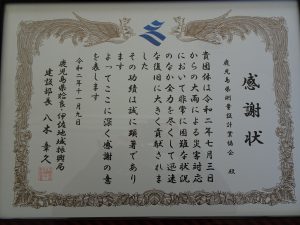 感謝状
鹿児島県測量設計業協会 殿
貴団体は令和二年七月三日
からの大雨による災害対応
において非常に困難な状況
のなか全力を尽くして迅速
な復旧に大きく貢献されま
した
その功績は誠に顕著であり
ます
よってここに深く感謝の意
を表します
令和二年十一月九日
鹿児島県姶良・伊佐地域振興局
建設部長 八木 幸久